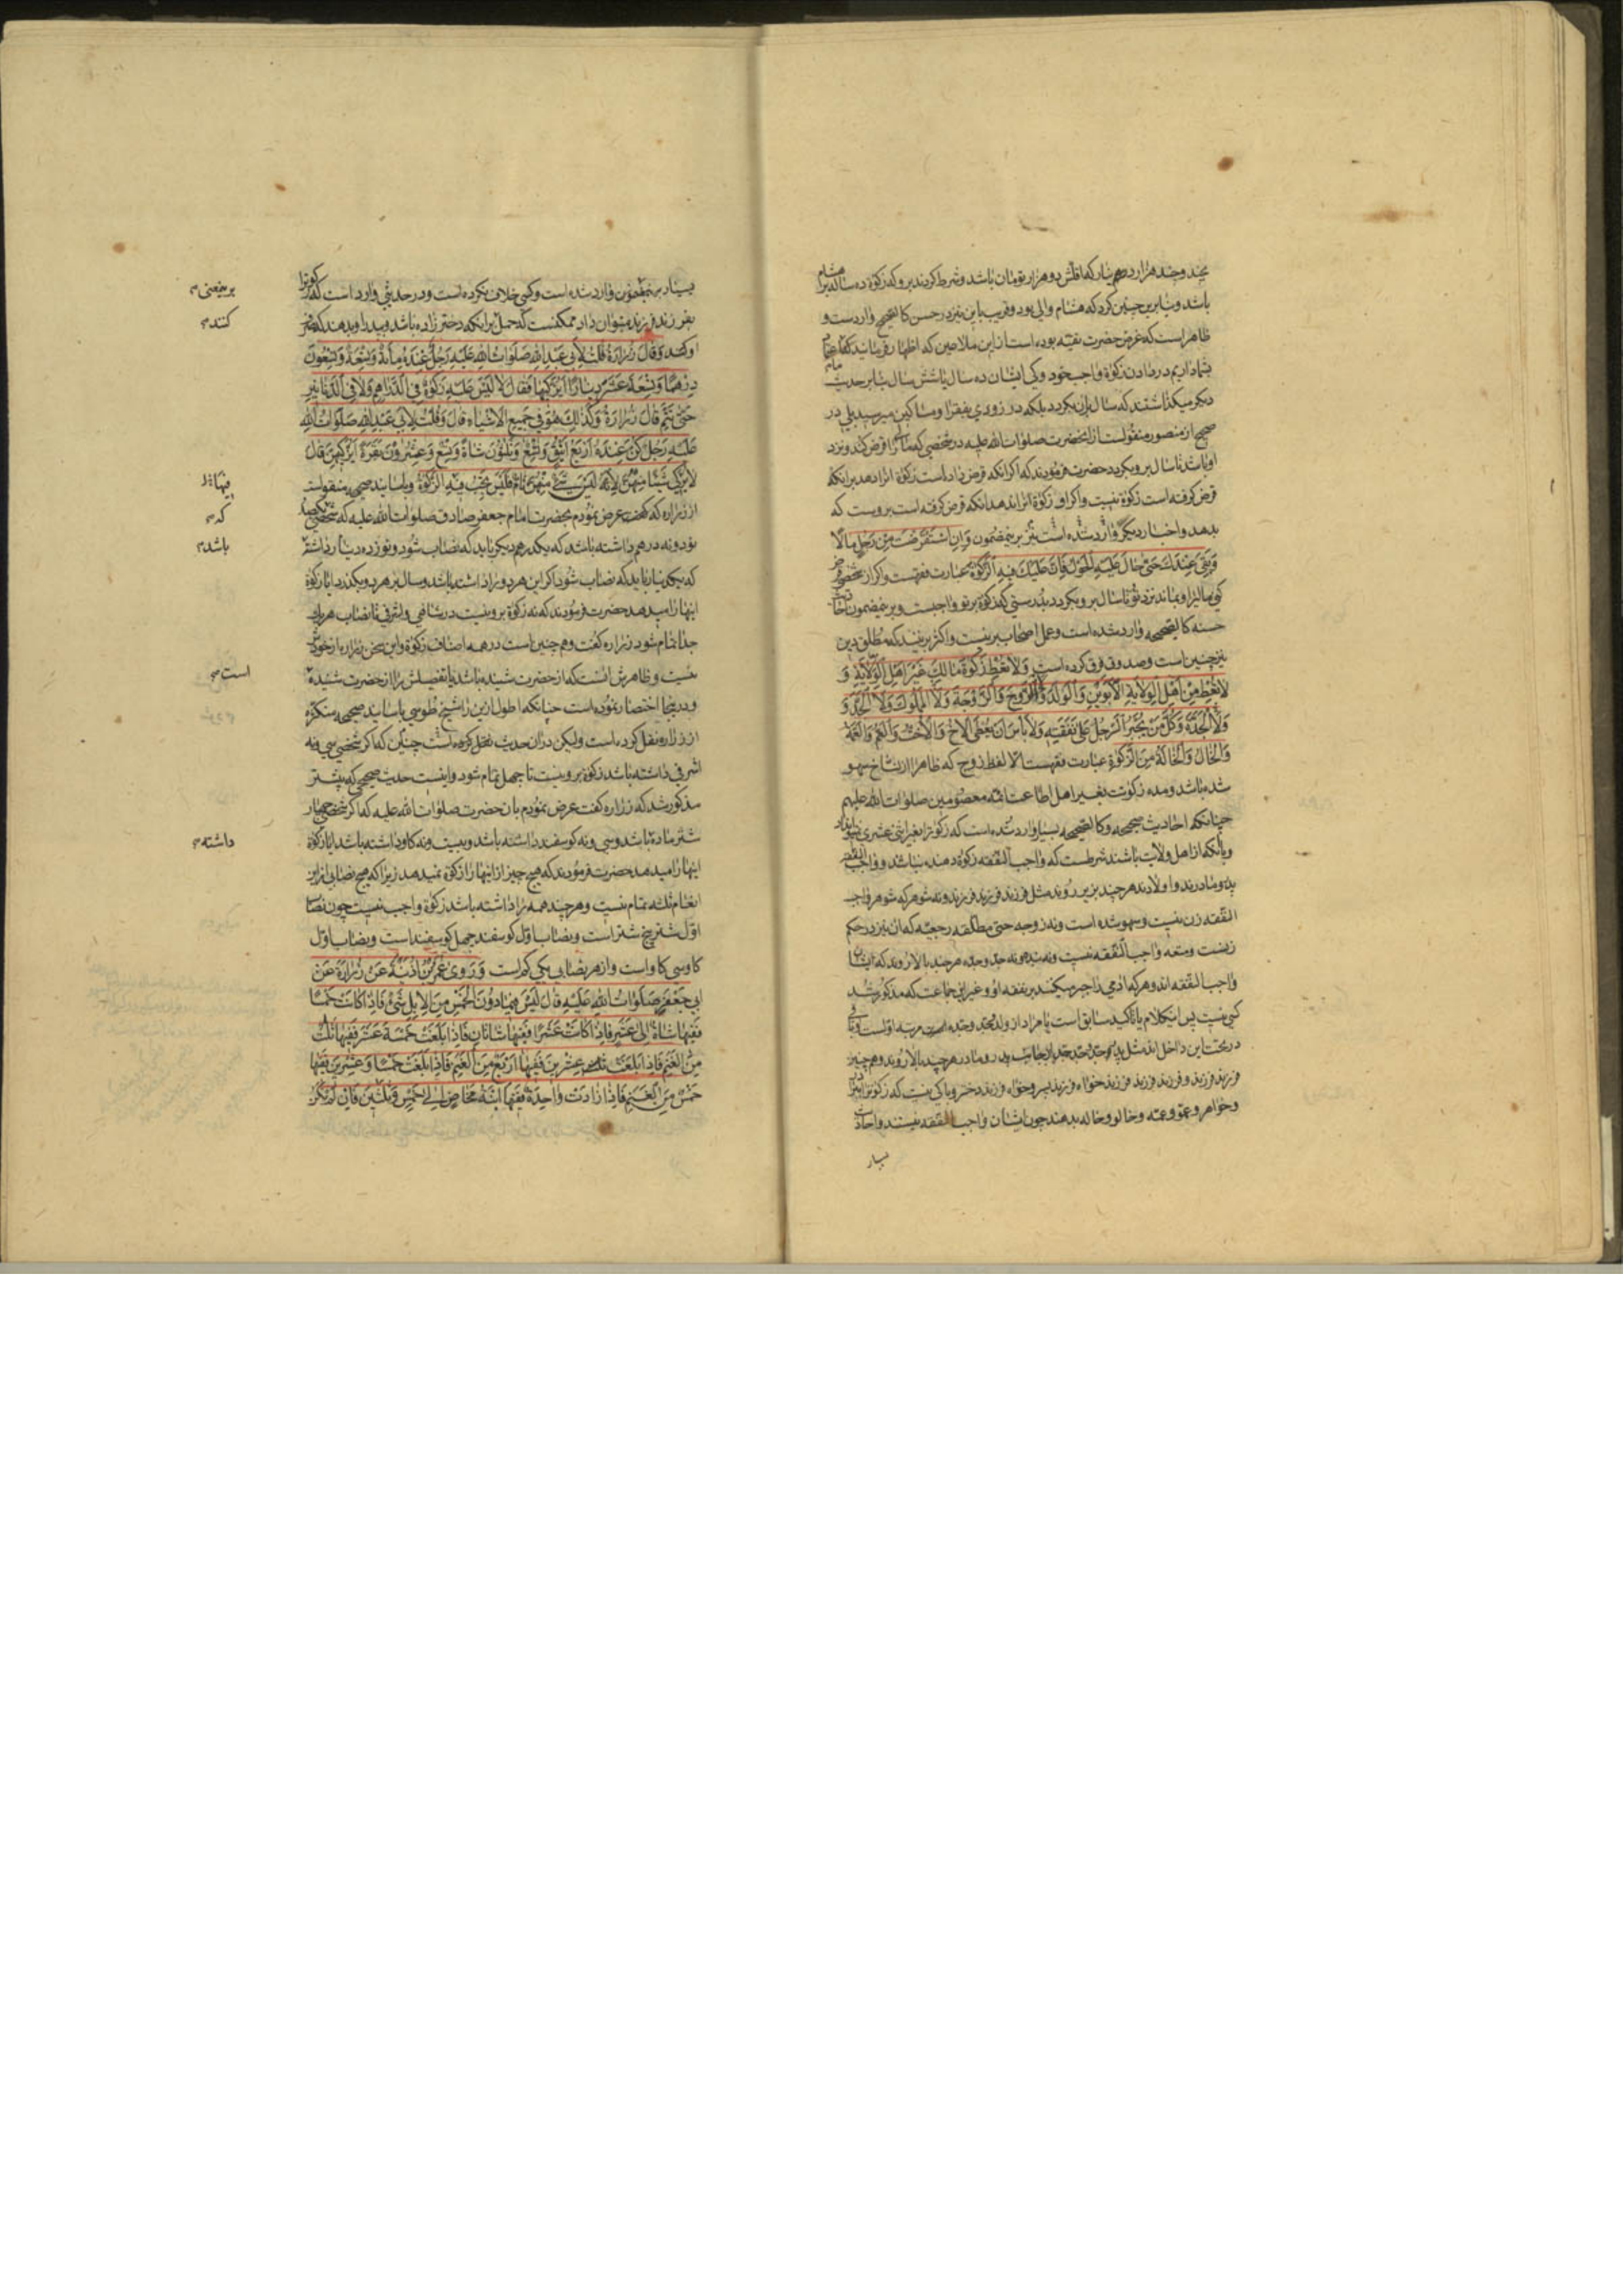 باشد و بنابرین چنین کرد که هشام والی بود و قریب باین نیز در حسن کالصحیح واردست و
ظاهر است که غرض حضرت تقیه بوده است از این ملاعین که اظهار فرمایند که
بشما داریم در دادن زکوة واجب خود و کی ایشان ده سال یا شش سال بنابر حدیث
دیکر میکذاشتند که سال بران بکردد بلکه در زودی بفقرا و مساکین میرسید بلی در
صحیح از منصور منقولست از انحضرت صلوات الله علیه در شخصی که مالی را قرض کند و نزد
او باشد تا سال برو بکردد حضرت فرمودند که اکر انکه قرض داده است زکوة انرا دهد بر انکه
قرض کرفته است زکوة نیست و اکر او زکوة انرا ندهد انکه قرض کرفته است بروست که
بدهد و اخبار دیکر وارد شده است نیز برینمضمون وَاِنِ اسْتَقْرَضْتَ مِنْ رَجُلٍ مالًا
وَبَقِیَ عِنْدَكَ حَتّی حالَ عَلَیْهِ الْحَوْلُ فَاِنَّ عَلَیْكَ فیهِ الزَّکوةَ عبارت فقهست و اکر از شخصی
کنی مالیرا و بماند نزد تو تا سال برو بکردد بدرستی که زکوة بر تو واجبست و برینمضمون
حسنه کالصحیحه وارد شده است و عمل اصحاب برینست و اکثر برینند که مطلق دین
نیز چنین است و صدوق فرق کرده است وَلا تُعْطِ زَکوةَ مالِكَ غَیْرَ اَهْلِ الْوِلایَةِ وَ
لا تُعْطِ مِنْ اَهْلِ الْوِلایَةِ الْاَبَوَیْنِ وَالْوَلَدَ وَالزَّوْجَ وَالزَّوْجَةَ وَلَا الْمَمْلُوكَ وَلَا الْجَدَّ وَ
وَلَا الْجَدَّةَ وَکُلَّ مَنْ یُجْبَرُ الرَّجُلُ عَلی نَفَقَتِهِ وَلا بَأْسَ اَنْ یُعْطَی الْاَخُ وَالْاُخْتُ وَالْعَمُّ وَالْعَمَّةُ
وَالْخالُ وَالْخالَةُ مِنَ الزَّکوةِ عبارت فقهست الا لفظ زوج که ظاهرا از نساخ سهو
شده باشد و مده زکوت بغیر اهل اطاعت ائمه معصومین صلوات الله علیهم
چنانکه احادیث صحیحه و کالصحیحه بسیار وارد شده است که زکوترا بغیر اثنی عشری
و بانکه از اهل ولایت باشند شرطست که واجب النفقه زکوة دهنده نباشد و واجب النفقه
پدر و مادرند و اولادند هر چند بزیر روند مثل فرزند فرزند فرزند و نه شوهر که شوهر واجب
النفقه زن نیست و سهو شده است و نه زوجه حتی مطلقه رجعیه که ان نیز در حکم
زنست و متعه واجب النفقه نیست و نه بنده و نه جد و جده هر چند بالا روند که ایشان
واجب النفقه اند و هر که ادمی را جبر میکنند بر نفقه او و غیر این جماعت که مذکور شد
کسی نیست پس اینکلام یا تاکید سابق است یا مراد از ولد و جد و جده مرتبه اولست
در تحت این داخل اند مثل پدر جد و جد جد از جانب پدر و مادر هر چند بالا روند و همچنین
فرزند فرزند و فرزند فرزند فرزند خواه فرزند پسر و خواه فرزند دختر و باکی نیست که زکوترا
و خواهر و عمو و عمه و خالو و خاله بدهند چون ایشان واجب النفقه نیستند و احادیث
بسیار
بسیار برینمضمون وارد شده است و کسی خلاف نکرده است و در حدیثی وارد است که زکوترا
بفرزند فرزند میتوان داد ممکنست که حمل بر انکه دختر زاده باشد و پدر او بدهند که صرف
او کند وَقالَ زُرارَةُ قُلْتُ لِاَبی عَبْدِ اللهِ صَلَواتُ اللهِ عَلَیْهِ رَجُلٌ عِنْدَهُ مِائَةٌ وَتِسْعَةٌ وَتِسْعُونَ
دِرْهَمًا وَتِسْعَةَ عَشَرَ دینارًا اَیُزَکّیها فَقالَ لا لَیْسَ عَلَیْهِ زَکوةٌ فِی الدَّراهِمِ وَلا فِی الدَّنانیرِ
حَتّی تَتِمَّ قالَ زُرارَةُ وَکَذلِكَ هُوَ فی جَمیعِ الْاَشْیاءِ قالَ وَقُلْتُ لِاَبی عَبْدِ اللهِ صَلَواتُ اللهِ
عَلَیْهِ رَجُلٌ کُنَّ عِنْدَهُ اَرْبَعُ اَیْنُقٍ وَتِسْعٌ وَثَلاثُونَ شاةً وَتِسْعٌ وَعِشْرُونَ بَقَرَةً اَیُزَکّیهِنَّ قالَ
لا یُزَکّی شَیْئًا مِنْهُنَّ لِاَنَّهُ لَیْسَ شَیْءٌ مِنْهُنَّ تامًّا فَلَیْسَ تَجِبُ فیهِ الزَّکوةُ و باسانید صحیحه منقولست
از زراره که کفت عرض نمودم بحضرت امام جعفر صادق صلوات الله علیه که شخصی
نود و نه درهم داشته باشد که یکدرهم دیکر باید که نصاب شود و نوزده دینار داشته
که یکدینار باید که نصاب شود اکر این هر دو را داشته باشد و سال بر هر دو بکذرد ایا زکوة
اینها را میدهد حضرت فرمودند که نه زکوة برو نیست در شاهی و اشرفی تا نصاب هر یك
جدا تمام شود زراره کفت و همچنین است در همه اصناف زکوة و این سخن زراره از خودش
نیست و ظاهرش انست که از حضرت شنیده باشد یا تفصیلش را از حضرت شنیده
و در اینجا اختصار نموده است چنانکه اطول ازین را شیخ طوسی باسانید صحیحه متکثره
از زراره نقل کرده است ولیکن در ان حدیث نقل کرده است چنین که اکر شخصی سی و نه
اشرفی داشته باشد زکوة برو نیست تا چهل تمام شود و اینست حدیث صحیحی که پیشتر
مذکور شد که زراره کفت عرض نمودم بان حضرت صلوات الله علیه که اکر شخصی چهار
شتر ماده باشد و سی و نه کوسفند داشته باشد و بیست و نه کاو داشته باشد ایا زکوة
اینها را میدهد حضرت فرمودند که هیچ چیز از اینها را زکوة نمیدهد زیرا که هیچ نصابی از این
انعام ثلثه تمام نیست و هر چند همه را داشته باشد زکوة واجب نیست چون نصاب
اول شتر پنج شتر است و نصاب اول کوسفند چهل کوسفند است و نصاب اول
کاو سی کاو است و از هر نصابی یکی کم است وَرَوی عُمَرُ بْنُ اُذَیْنَةَ عَنْ زُرارَةَ عَنْ
اَبی جَعْفَرٍ صَلَواتُ اللهِ عَلَیْهِ قالَ لَیْسَ فیما دُونَ الْخَمْسِ مِنَ الْاِبِلِ شَیْءٌ فَاِذا کانَتْ خَمْسًا
فَفیها شاةٌ اِلی عَشْرٍ فَاِذا کانَتْ عَشْرًا فَفیها شاتانِ فَاِذا بَلَغَتْ خَمْسَةَ عَشَرَ فَفیها ثَلثٌ
مِنَ الْغَنَمِ فَاِذا بَلَغَتْ عِشْرینَ فَفیها اَرْبَعٌ مِنَ الْغَنَمِ فَاِذا بَلَغَتْ خَمْسًا وَعِشْرینَ فَفیها
خَمْسٌ مِنَ الْغَنَمِ فَاِذا زادَتْ واحِدَةً فَفیها ابْنَةُ مَخاضٍ اِلی خَمْسٍ وَثَلثینَ فَاِنْ لَمْ تَکُنْ
کنند
که
باشد
است
داشته